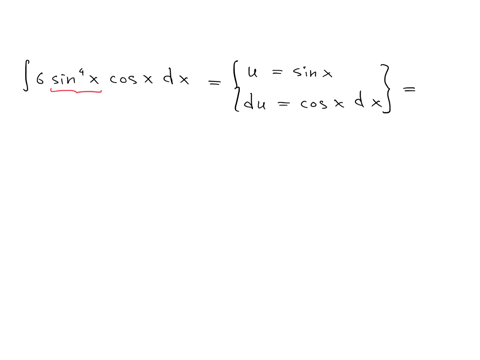 ∫ 6 sin⁴x cos x dx = { u = sin x
du = cos x dx } =